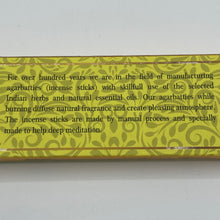 For over hundred years we are in the field of manufacturing
agarbatties (incense sticks) with skilfull use of the selected
Indian herbs and natural essential oils. Our agarbatties while
burning diffuse natural fragrance and create pleasing atmosphere.
The incense sticks are made by manual process and specially
made to help deep meditation.